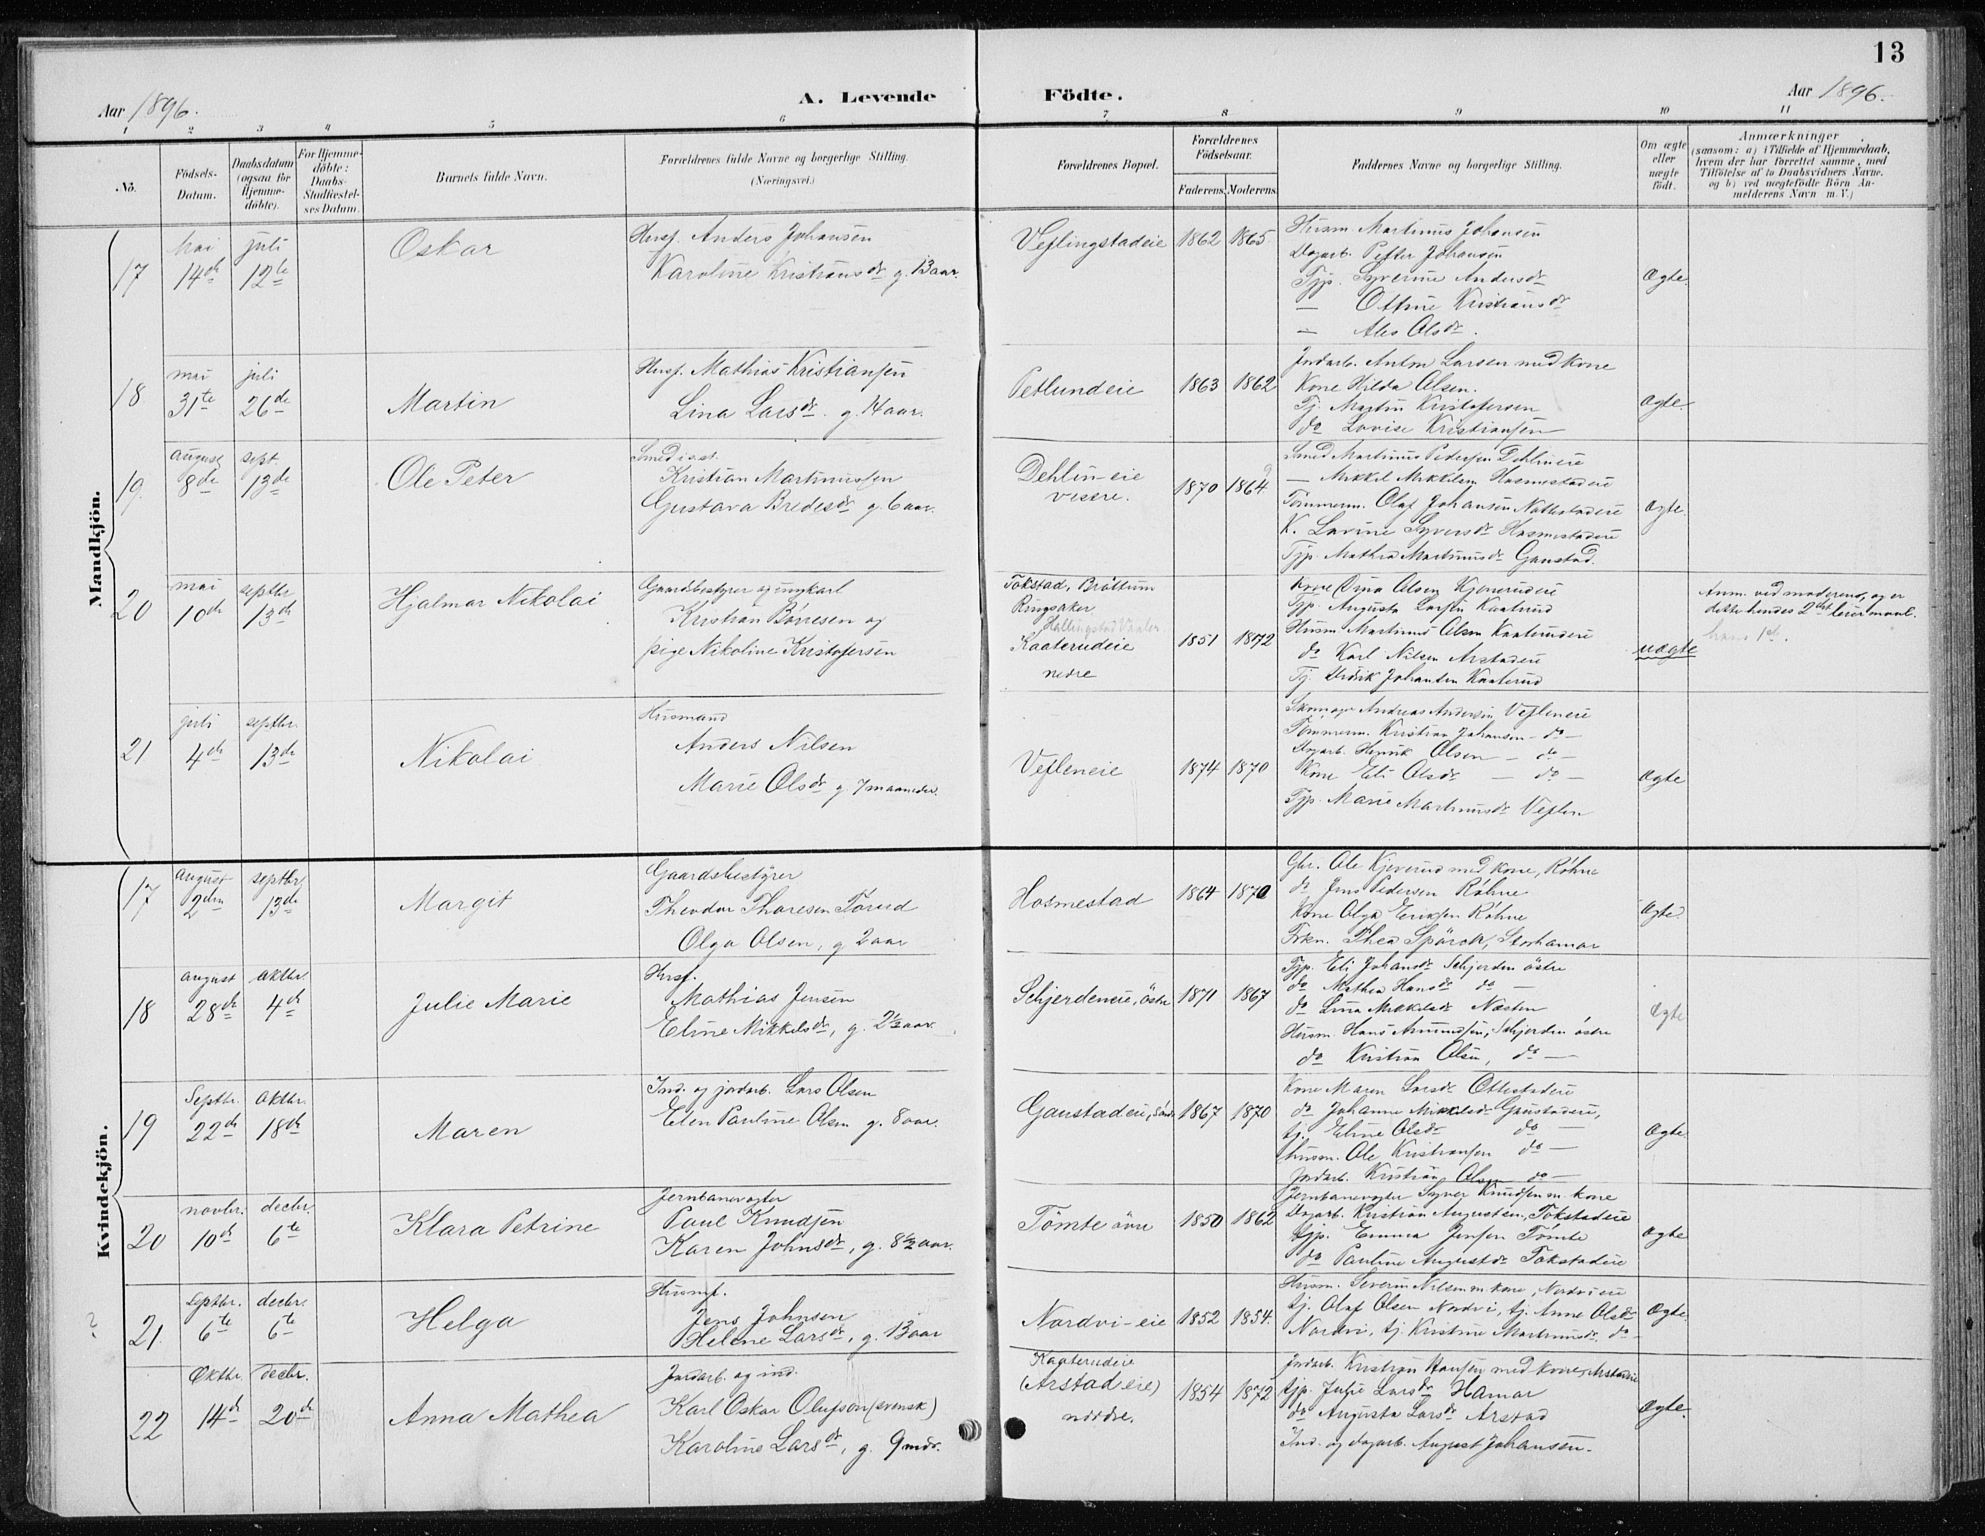 13
Aar 1896.
A. Levende Födte.
Aar 1896.
1 2 3 4 5 6 7 8 9 10 11
No.
Födsels-Datum.
Daabsdatum (ogsaa for Hjemme-döbte).
For Hjemme-döbte: Daabs-Stadfæstel-ses Datum.
Barnets fulde Navn.
Forældrenes fulde Navne og borgerlige Stilling.
(Næringsvei.)
Forældrenes Bopæl.
Forældrenes Födselsaar.
Faderens. Moderens.
Faddernes Navne og borgerlige Stilling.
Om ægte eller uægte födt.
Anmærkninger
(saasom: a) i Tilfælde af Hjemmedaab,
hvem der har forrettet samme, med
Tilföielse af to Daabsvidners Navne.
og b) ved uægtefödte Börn An-
melderens Navn m. V.)
Mandkjön.
17 mai 14de juli 12te
Oskar
Husf. Anders Johansen
Karoline Kristiansdr g. 13 aar.
Veflingstadeie 1862 1865
Husm. Martinus Johansen
Dagarb. Petter Johansen
Tjp. Syverine Andersdr
— Ottine Kristiansdr
— Ales Olsdr.
Ægte.
18 mai 31te juli 26de
Martin
Husf. Mathias Kristiansen
Lina Larsdr. g. 14 aar.
Petlundeie 1863 1862
Jordarb. Anton Larsen med kone
Kone Hilda Olsen.
Tj. Martin Kristofersen
do Lovise Kristiansen
Ægte.
19. august 8de sept. 13de
Ole Peter
Smed i.s.st.
Kristian Martinussen
Gustava Bredesdr g. 6 aar.
Dehlin-eie vestre. 1870 1864
Smed Martinus Pedersen Dehlineie
— Mikkel Mikkelsen Hosmestadeie
Tømmerm. Olaf Johansen Nattestadeie
K. Lavine Syversdr Hosmestadeie
Tjp. Mathea Martinusdr Gaustad.
Ægte.
20 mai 10de septbr 13de
Hjalmar Nikolai
Gaardsbestyrer og ungkarl
Kristian Börresen og
pige Nikoline Kristofersen
Tokstad, Bröttum
Ringsaker
Hellingstad Vaaler
Kaaterudeie
nedre
1851 1872
Kone Oina Olsen Kjeverudeie
Tjp. Augusta Larsen Kaaterud
Husm Martinus Olsen Kaaterudeie
do Karl Nilsen Arstadeie
Tj. Didrik Johansen Kaaterud
uægte
Anm. ved moderen, og er
dette hendes 2det leiermaal.
hans 1ste.
21 juli 4de septbr. 13de
Nikolai
Husmand
Anders Nilsen
Marie Olsdr g. 7 maaneder.
Vefleneie 1874 1870
Skomager Andreas Andersen Vefleneie
Tømmerm. Kristian Johansen – do –
Dagarb. Henrik Olsen – do –
Kone Eli Olsdr – do –
Tjp. Marie Martinusdr Veflen
Ægte
Kvindekjön.
17 august 2den septbr. 13de
Margit
Gaardsbestyrer
Theodor Thoresen Torud
Olga Olsen, g 2 aar
Hosmestad 1864 1870
Gbr. Ole Kjeverud med kone, Röhne
do Jens Pedersen Röhne
Kone Olga Eriksen Röhne
Frkn. Thea Spörck, Storhamar
Ægte
18 august 28de oktbr. 4de
Julie Marie
Husf.
Mathias Jensen
Eline Mikkelsdr, g. 2½ aar.
Schjerdeneie, östre 1871 1867
Tjp. Eli Johansdr Schjerden östre
do Mathea Hansdr do —
do Lina Mikkelsdr Næsten
Husm. Hans Amundsen, Schjerden östre
do Kristian Olsen, do —
Ægte
19 Septbr. 22de Oktbr. 18de
Maren
Ind. og jordarb. Lars Olsen
Elen Pauline Olsen g. 8 aar.
Gaustadeie, 1867 1870
Kone Maren Larsdr Ottestadeie
do Johanne Mikkelsdr Gaustadeie,
tj. Eline Olsdr do —
husm. Ole Kristiansen do —
Jordarb. Kristian Olsen do —
Ægte.
20 novbr. 10de decbr. 6te
Klara Petrine
Jernbanevogter
Paul Knudsen
Karen Johnsdr, g. 8½ aar.
Tömte övre 1850 1862
Jernbanevogter Syver Knudsen m. kone
Dagarb. Kristian Augustsen, Tokstadeie
tjp. Emma Jensen Tömte
do Pauline Augustdr Tokstadeie
Ægte
?
21. Septbr. 6te decbr. 6te
Helga
Husmf.
Jens Johnsen
Helene Larsdr, g. 13 aar
Nordvi-eie 1852 1854.
Husm. Severin Nilsen m kone, Nordvieie
tj. Olaf Olsen Nordvi, tj. Anne Olsdr
Nordvi, tj. Kristine Martinusdr, do —
Ægte.
22 Oktbr. 14de decbr. 20de
Anna Mathea
Jordarb. og ind.
Karl Oskar Olufson (svensk)
Karoline Larsdr, g. 9 mdr.
Kaaterudeie
(Arstad eie)
nordre.
1854 1872
Jordarb. Kristian Hansen med kone, Arstadeie
tjp. Julie Larsdr Hamar
do Augusta Larsdr Arstad
Ind. og dagarb. August Johansen.
Ægte.